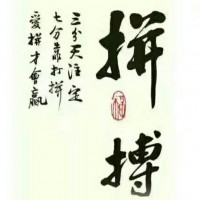 拼
搏
三分天注定
七分靠打拼
爱拼才會赢